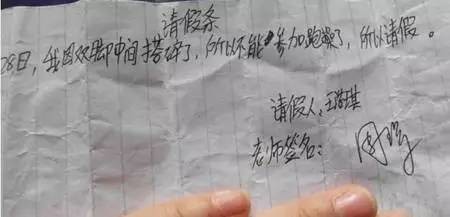 请假条
28日,我因双脚中间搭碎了,所以不能参加跑操了,所以请假。
请假人:王
老师签名: